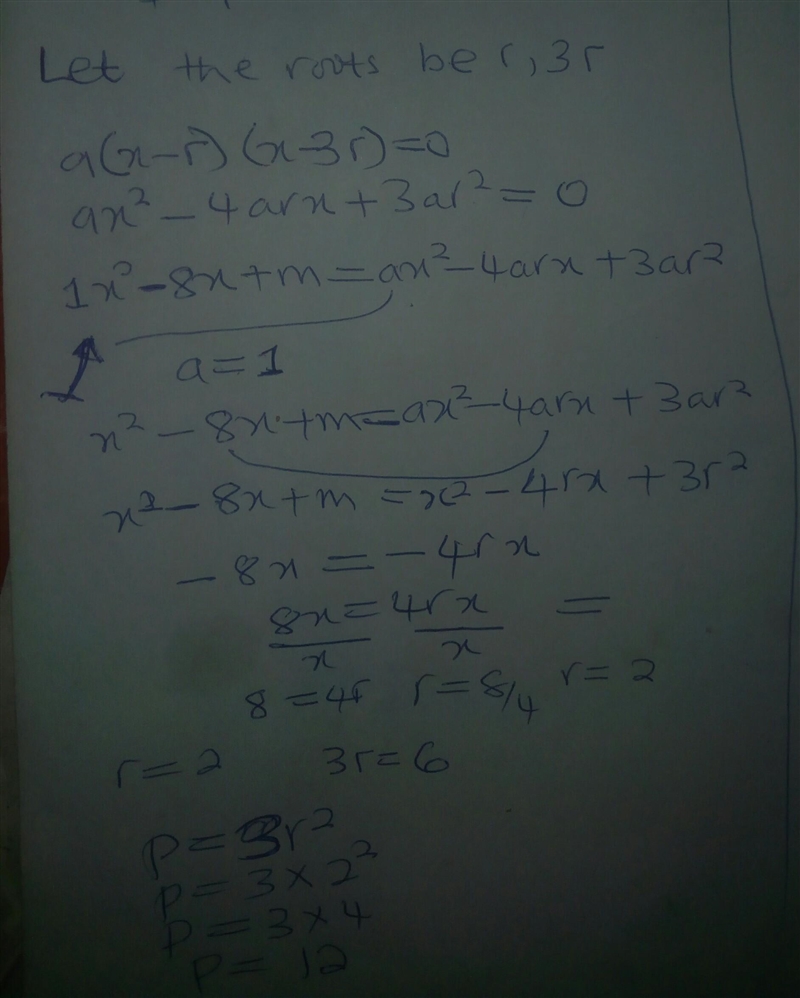 Let the roots be r, 3r
a(x-r) (x-3r)=0
ax² - 4arx + 3ar² = 0
1x² - 8x + m = ax² - 4arx + 3ar²
a = 1
x² - 8x + m = ax² - 4arx + 3ar²
x² - 8x + m = x² - 4rx + 3r²
- 8x = - 4rx
8x/x = 4rx/x =
8 = 4r r = 8/4 r = 2
r = 2 3r = 6
p = 3r²
p = 3 × 2²
p = 3 × 4
p = 12